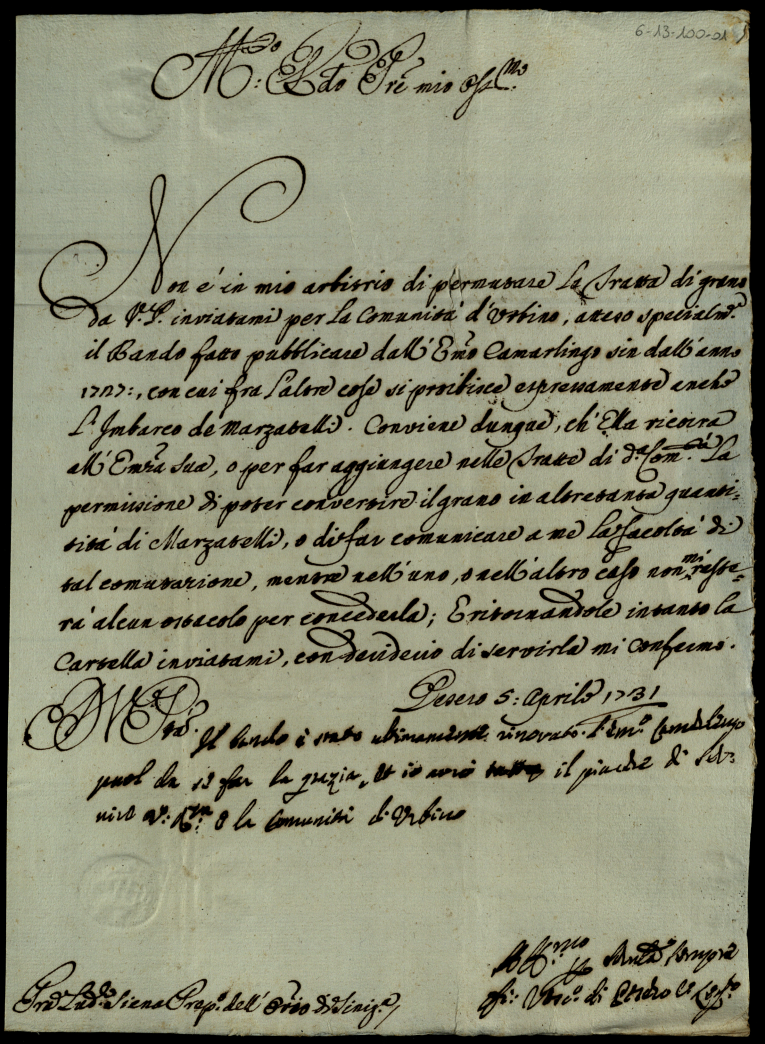 6-13-100-01
M.do R.do Pre mio oss.mo
Non é in mio arbitrio di permutare la Tratta di grano
da V. P. inviatami per la Comunità d'Urbino, atteso specialm.e
il Bando fatto pubblicare dall'Emo Camarlingo sin dall'anno
1727:, con cui fra l'altre cose si proibisce espressamente anche
l'Imbarco de Marzatelli. Conviene dunque, ch'Ella ricorra
all'Emza Sua, o per far aggiungere nelle Tratte di d.a Com.tà la
permissione di poter convertire il grano in altretanta quanti-
tità di Marzatelli, o di far comunicare a me la facoltà di
tal comutazione, mentre nell'uno, o nell'altro caso non mi reste-
rà alcun ostacolo per concederla; E ritornandole intanto la
Cartella inviatami, con desiderio di servirla mi confermo.
Pesero 5: Aprile 1731
Il bando è stato ultimamente rinovato. L'Em.o Camarlingo
puol da se far la grazia, et io avrò il piacere di ser-
vire V: R.za e la Comunità di Urbino
Aff.mo Sempre
di Pesero
Pre Lud.o Siena Prep.o dell'Orio di Sinig.a